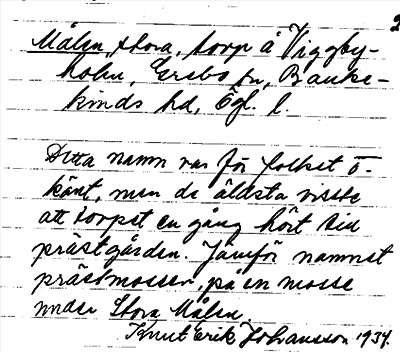 2
Målen, Stora, torp å Viggby-
holm, Grebo sn, Banke-
kinds hd, Ögl. l.
Detta namn var för folket o-
känt, men de äldsta visste
att torpet en gång hört till
prästgården. Jämför namnet
prästmossen, på en mosse
under Stora Målen.
Knut Erik Johansson 1934.